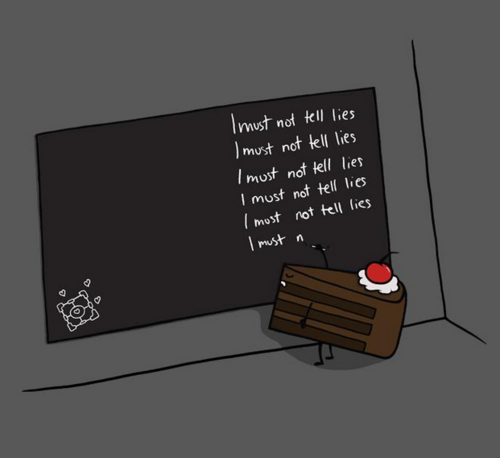 I must not tell lies
I must not tell lies
I must not tell lies
I must not tell lies
I must not tell lies
I must n